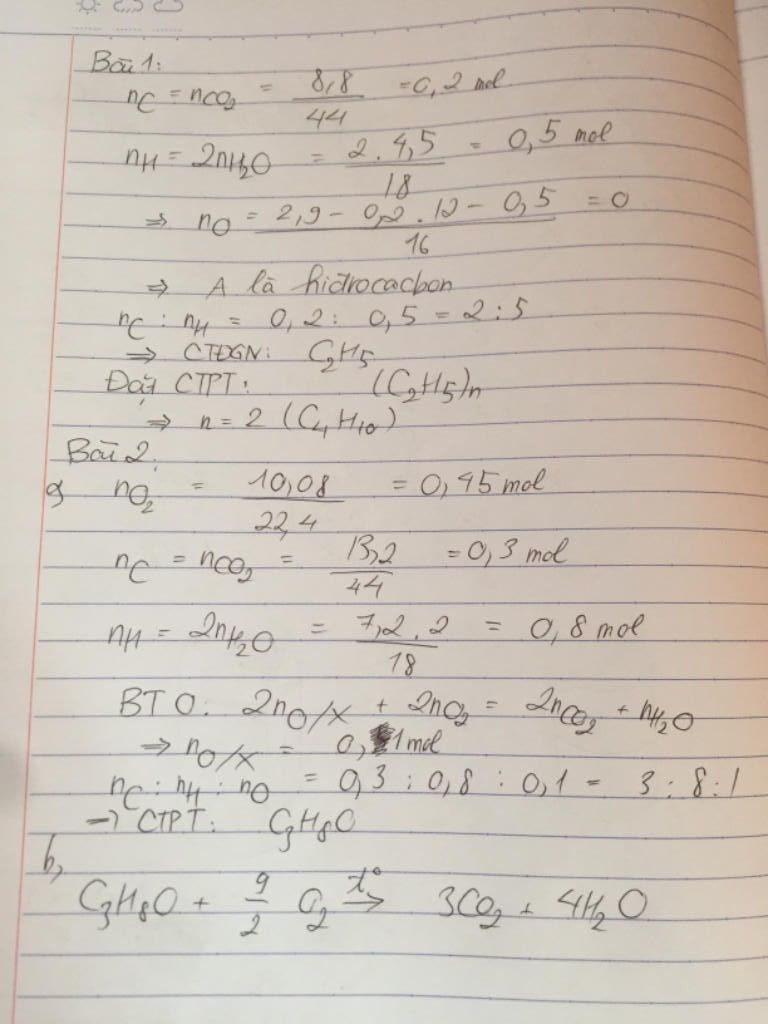 Bài 1:
nC = nCO2 = 8,8/44 = 0,2 mol
nH = 2nH2O = 2.4,5/18 = 0,5 mol
⇒ nO = 2,9 - 0,2.12 - 0,5/16 = 0
⇒ A là hiđrocacbon
nC : nH = 0,2 : 0,5 = 2 : 5
⇒ CTĐGN: C2H5
Đặt CTPT: (C2H5)n
⇒ n = 2 (C4H10)
Bài 2:
a, nO2 = 10,08/22,4 = 0,45 mol
nC = nCO2 = 13,2/44 = 0,3 mol
nH = 2nH2O = 7,2.2/18 = 0,8 mol
BT O: 2nO/X + 2nO2 = 2nCO2 + nH2O
⇒ nO/X = 0,1 mol
nC : nH : nO = 0,3 : 0,8 : 0,1 = 3 : 8 : 1
→ CTPT: C3H8O
b,
C3H8O + 9/2 O2 t°→ 3CO2 + 4H2O